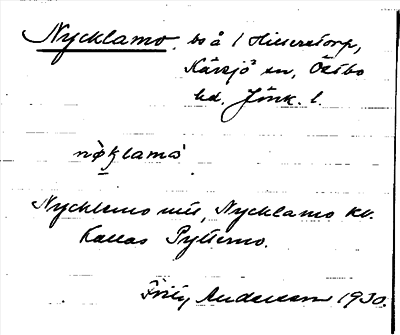 Nycklamo, bo å / Hillerstorp,
Kävsjö sn, Östbo
hd. Jönk. l.
Nycklemo mii, Nycklamo kv.
Kallas Pyttemo.
Fritz Andersson 1930.